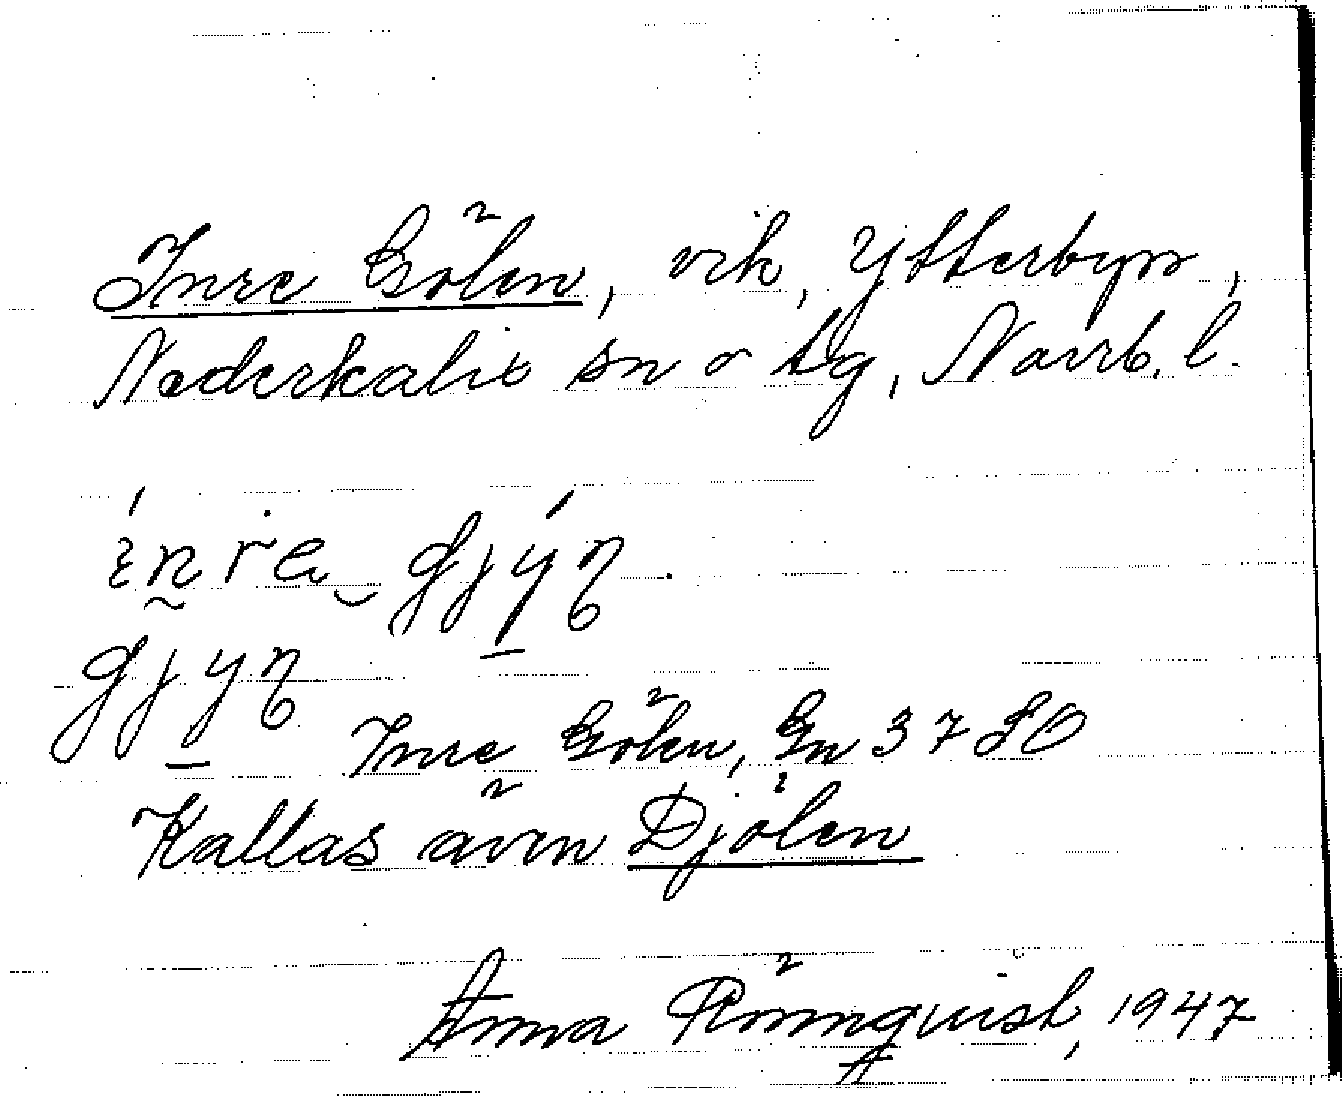 Inre Gölen, vik, Ytterbyn,
Nederkalix sn o tg, Norrb. l.
inre gjyn
gjyn
Inre Gölen, Gn 37 SO
Kallas även Djölen
Anna Rönnquist, 1947